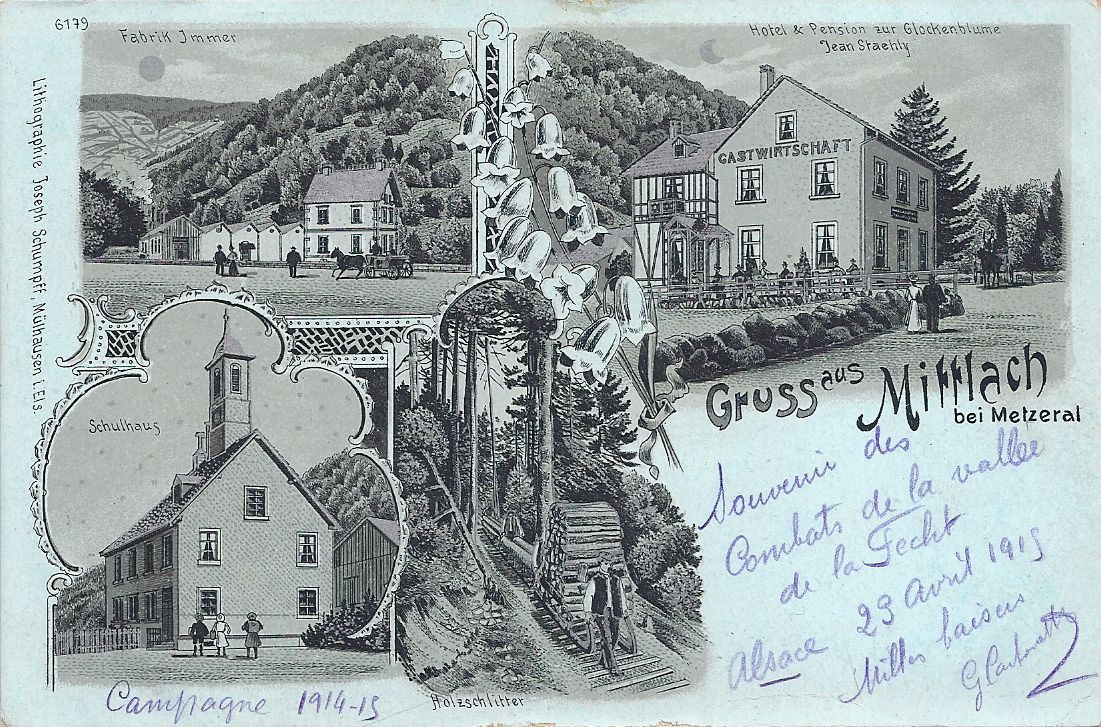 6179
Fabrik Immer
Hotel & Pension zur Glockenblume
Jean Staehly
GASTWIRTSCHAFT
Lithographie Joseph Schumpff, Mülhausen i. Els.
Gruss aus Mittlach
bei Metzeral
Schulhaus
Holzschlitter
Souvenir des
Combats de la vallée
de la Fecht
Alsace 23 avril 1915
Milles baisers
Campagne 1914-15